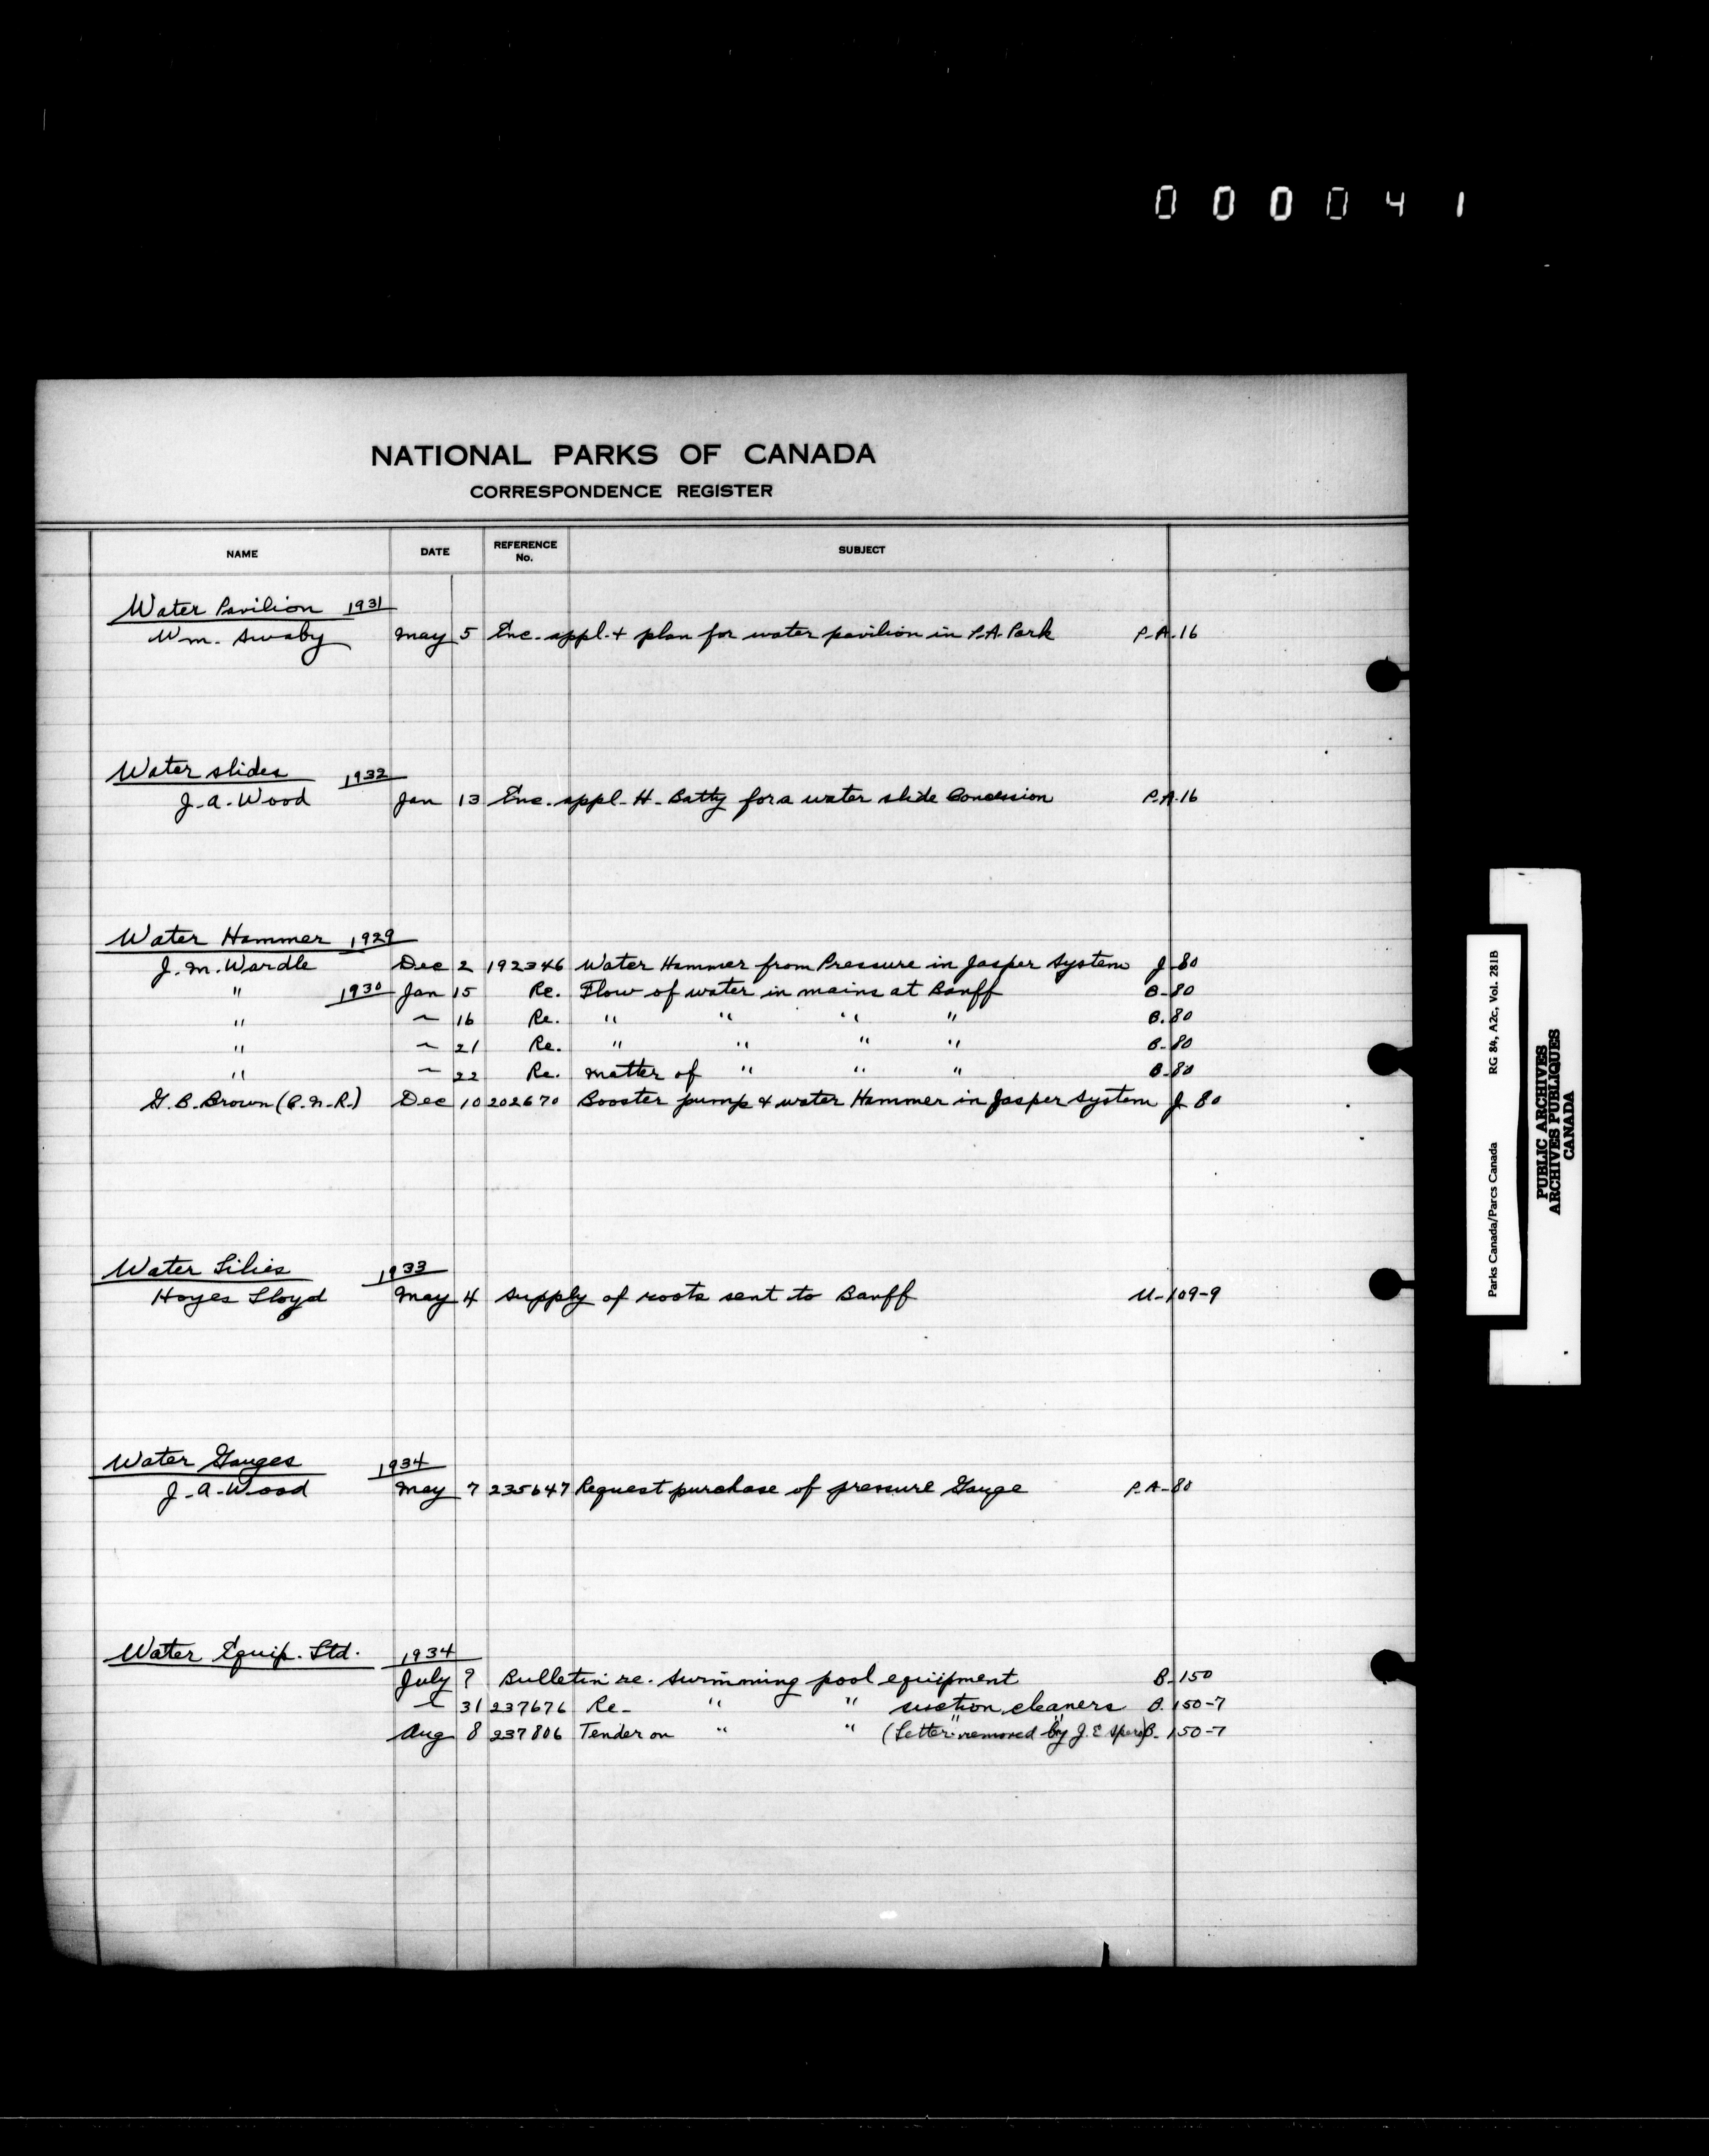 000041
NATIONAL PARKS OF CANADA
CORRESPONDENCE REGISTER
NAME DATE REFERENCE No. SUBJECT
Water Pavilion 1931
Wm. Swaby May 5 Enc. appl. + plan for water pavilion in P.A. Park P.A.16
Water slides 1932
J.A. Wood Jan 13 Enc. appl. H. Batty for a water slide Concession P.A.16
Water Hammer 1929
J.M. Wardle Dec 2 192346 Water Hammer from Pressure in Jasper System J-80
" 1930 Jan 15 Re. Flow of water in mains at Banff B-80
" ~ 16 Re. " " " " B.80
" ~ 21 Re. " " " " B-80
" ~ 22 Re. matter of " " " B-80
G.B. Brown (C.N.R.) Dec 10 202670 Booster pump & water Hammer in Jasper System J 80
Water Lilies 1933
Hoyes Lloyd May 4 supply of roots sent to Banff U-109-9
Water Gauges 1934
J.A. Wood May 7 235647 Request purchase of pressure Gauge P.A-80
Water Equip. Ltd. 1934
July ? Bulletin re. swimming pool equipment B-150
~ 31 237676 Re- " " suction cleaners B.150-7
Aug 8 237806 Tender on " " " " (Letter removed by J.E. Spero) B-150-7
Parks Canada/Parcs Canada RG 84, A2c, Vol. 281B
PUBLIC ARCHIVES
ARCHIVES PUBLIQUES
CANADA